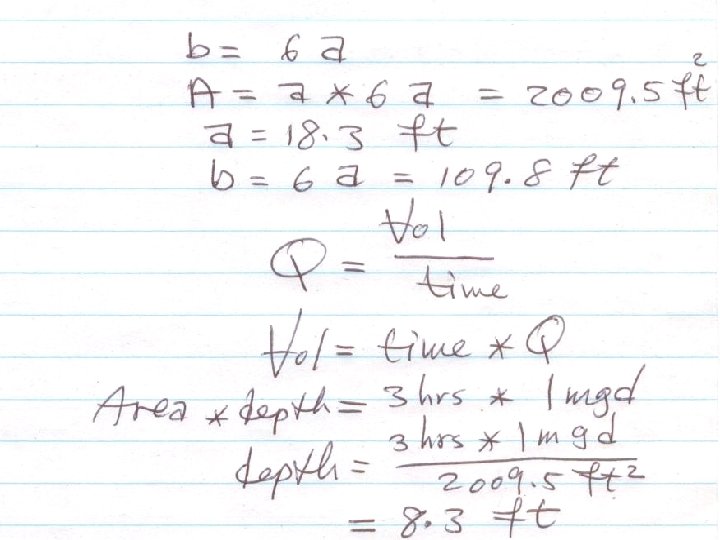 b = 6 a
A = a * 6 a = 2009.5 ft²
a = 18.3 ft
b = 6 a = 109.8 ft
Q = Vol / time
Vol = time * Q
Area * depth = 3 hrs * 1 mgd
depth = 3 hrs * 1 mgd / 2009.5 ft²
= 8.3 ft